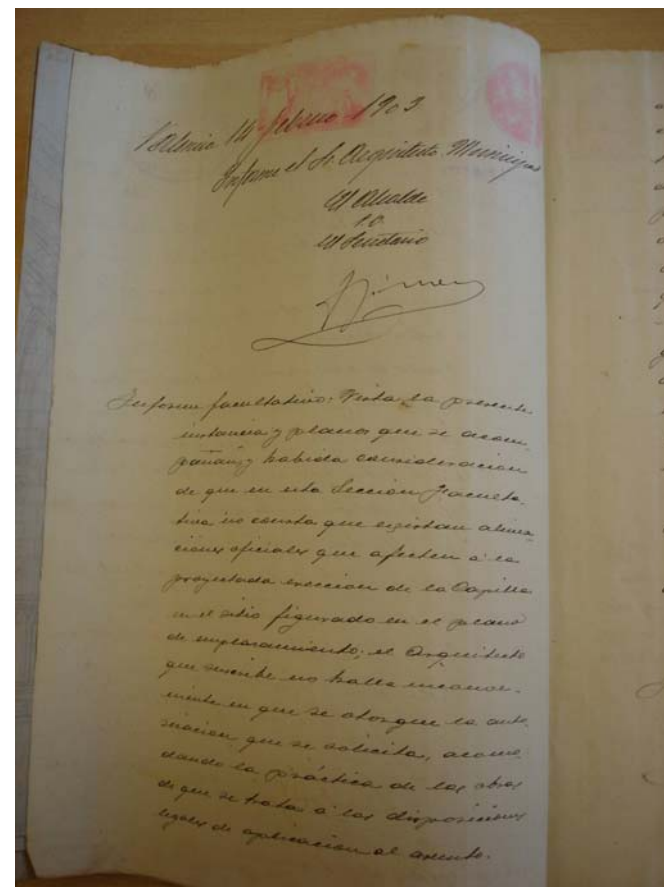 Valencia 14 febrero 1903.
Informe el Sr. Arquitecto Municipal
El Alcalde
P.O.
El Secretario
Informe facultativo: Vista la presente
instancia y planos que se acom-
pañan, y habida consideración
de que en esta Sección Faculta-
tiva no consta que existan alinea-
ciones oficiales que afecten á la
proyectada erección de la Capilla
en el sitio figurado en el plano
de emplazamiento; el Arquitecto
que suscribe no halla inconve-
niente en que se otorgue la auto-
rización que se solicita, acomo-
dando la práctica de las obras
de que se trata á las disposiciones
legales de aplicación al asunto.